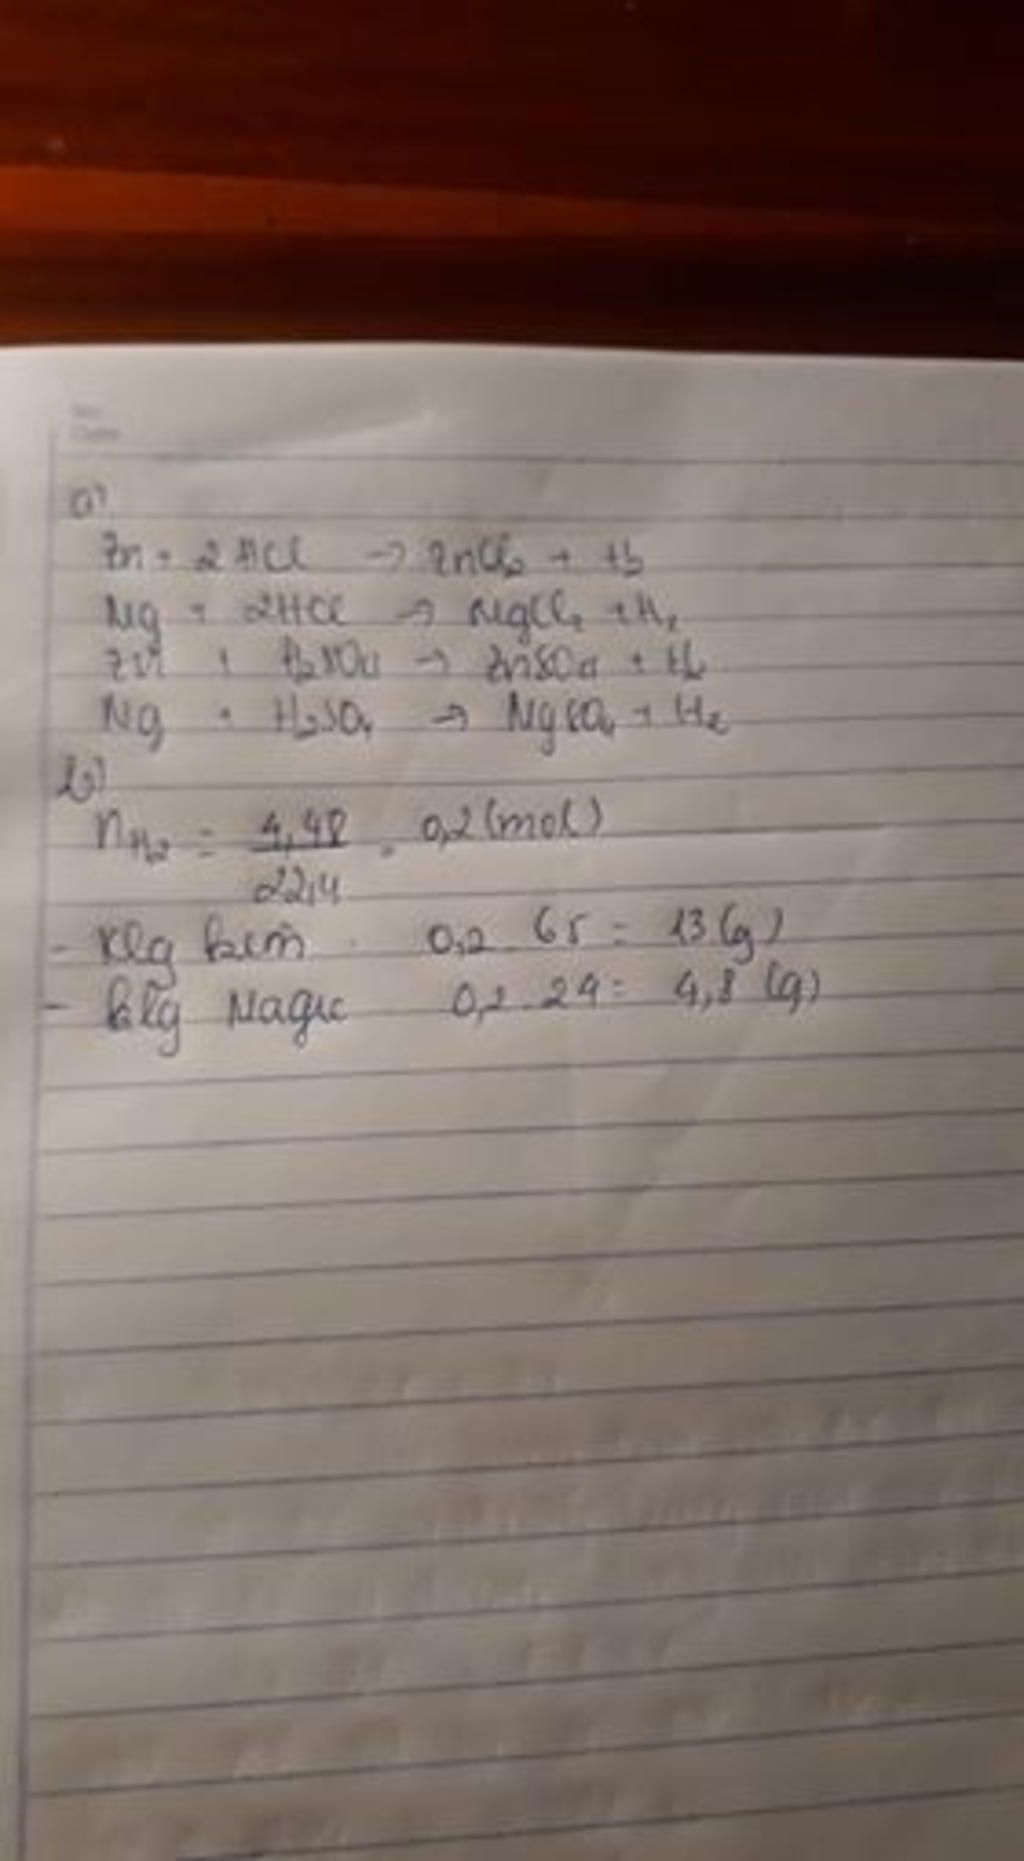 a)
Zn + 2HCl → ZnCl₂ + H₂
Mg + 2HCl → MgCl₂ + H₂
Zn + H₂SO₄ → ZnSO₄ + H₂
Mg + H₂SO₄ → MgSO₄ + H₂
b)
nH₂ = 4,48/22,4 = 0,2 (mol)
- Klg kẽm : 0,2 . 65 = 13 (g)
- klg Magie 0,2 . 24 = 4,8 (g)